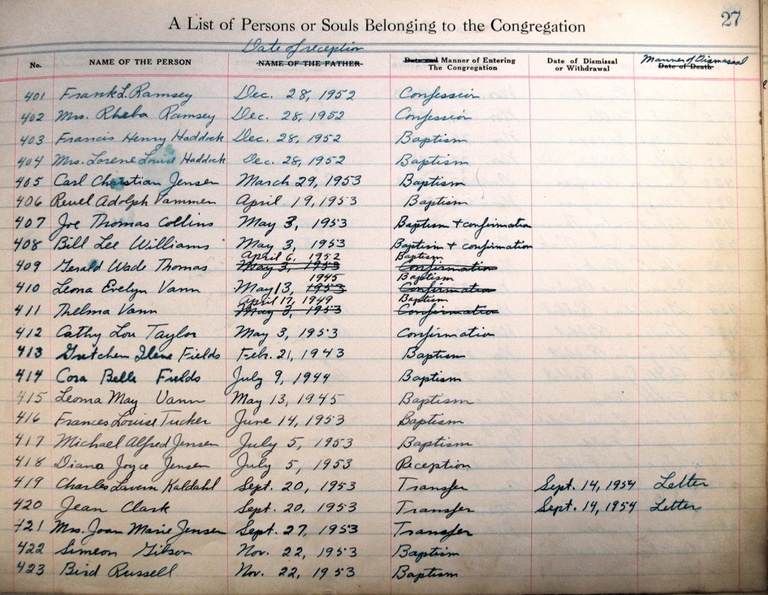 27
A List of Persons or Souls Belonging to the Congregation
Date of reception
No. NAME OF THE PERSON NAME OF THE FATHER Manner of Entering The Congregation Date of Dismissal or Withdrawal Manner of Dismissal Date of Death
401 Frank L. Ramsey Dec. 28, 1952 Confession
402 Mrs. Rheba Ramsey Dec. 28, 1952 Confession
403 Francis Henry Haddock Dec. 28, 1952 Baptism
404 Mrs. Lorene Louise Haddock Dec. 28, 1952 Baptism
405 Carl Christian Jensen March 29, 1953 Baptism
406 Revel Adolph Vammen April 19, 1953 Baptism
407 Joe Thomas Collins May 3, 1953 Baptism + confirmation
408 Bill Lee Williams May 3, 1953 Baptism + confirmation
April 6, 1952 Baptism
409 Gerald Wade Thomas May 3, 1953 Confirmation
1945 Baptism
410 Leona Evelyn Vann May 13, 1953 Confirmation
April 17, 1949 Baptism
411 Thelma Vann May 3, 1953 Confirmation
412 Cathy Lou Taylor May 3, 1953 Confirmation
413 Gretchen Ilene Fields Feb. 21, 1943 Baptism
414 Cora Belle Fields July 9, 1944 Baptism
415 Leoma May Vann May 13, 1945 Baptism
416 Frances Louise Tucker June 14, 1953 Baptism
417 Michael Alfred Jensen July 5, 1953 Baptism
418 Diana Joyce Jensen July 5, 1953 Reception
419 Charles Lavern Kaldahl Sept. 20, 1953 Transfer Sept. 14, 1954 Letter
420 Jean Clark Sept. 20, 1953 Transfer Sept. 14, 1954 Letter
421 Mrs. Joan Marie Jensen Sept. 27, 1953 Transfer
422 Simeon Gibson Nov. 22, 1953 Baptism
423 Bird Russell Nov. 22, 1953 Baptism